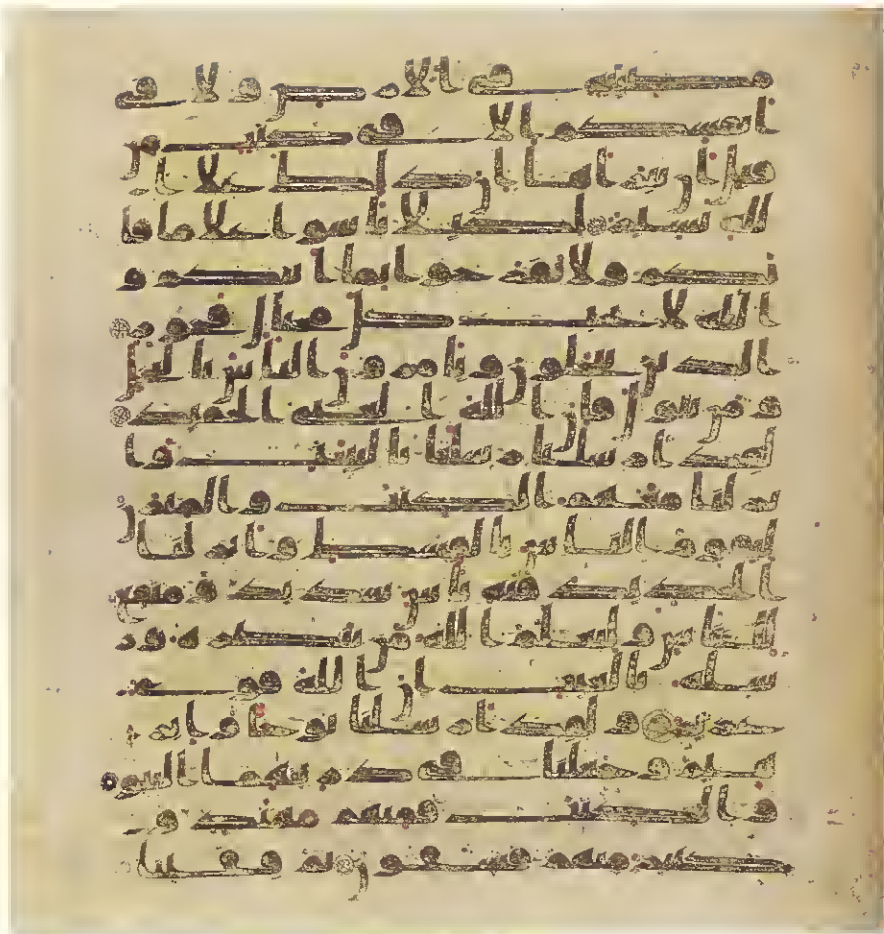 مصيبة في الارض ولا في
انفسكم الا في كتب من
قبل ان نبراها ان ذلك علا ا
لله يسير لكيلا تاسوا علا ما فا
تكم ولا تفرحوا بما اتيكم و
الله لا يحب كل مختال فخور
الذين يبخلون ويامرون الناس بالبخل
ومن يتول فان الله الغني الحميد
لقد ارسلنا رسلنا بالبينت وا
نزلنا معهم الكتب والميزن
ليقوم الناس بالقسط وانزلنا
الحديد فيه باس شديد ومنفع
للناس وليعلم الله من ينصره ور
سله بالغيب ان الله قوي عز
يز ولقد ارسلنا نوحا وابر
هيم وجعلنا في ذريتهما النبوة
والكتب فمنهم مهتد و
كثير منهم فسقون ثم قفينا